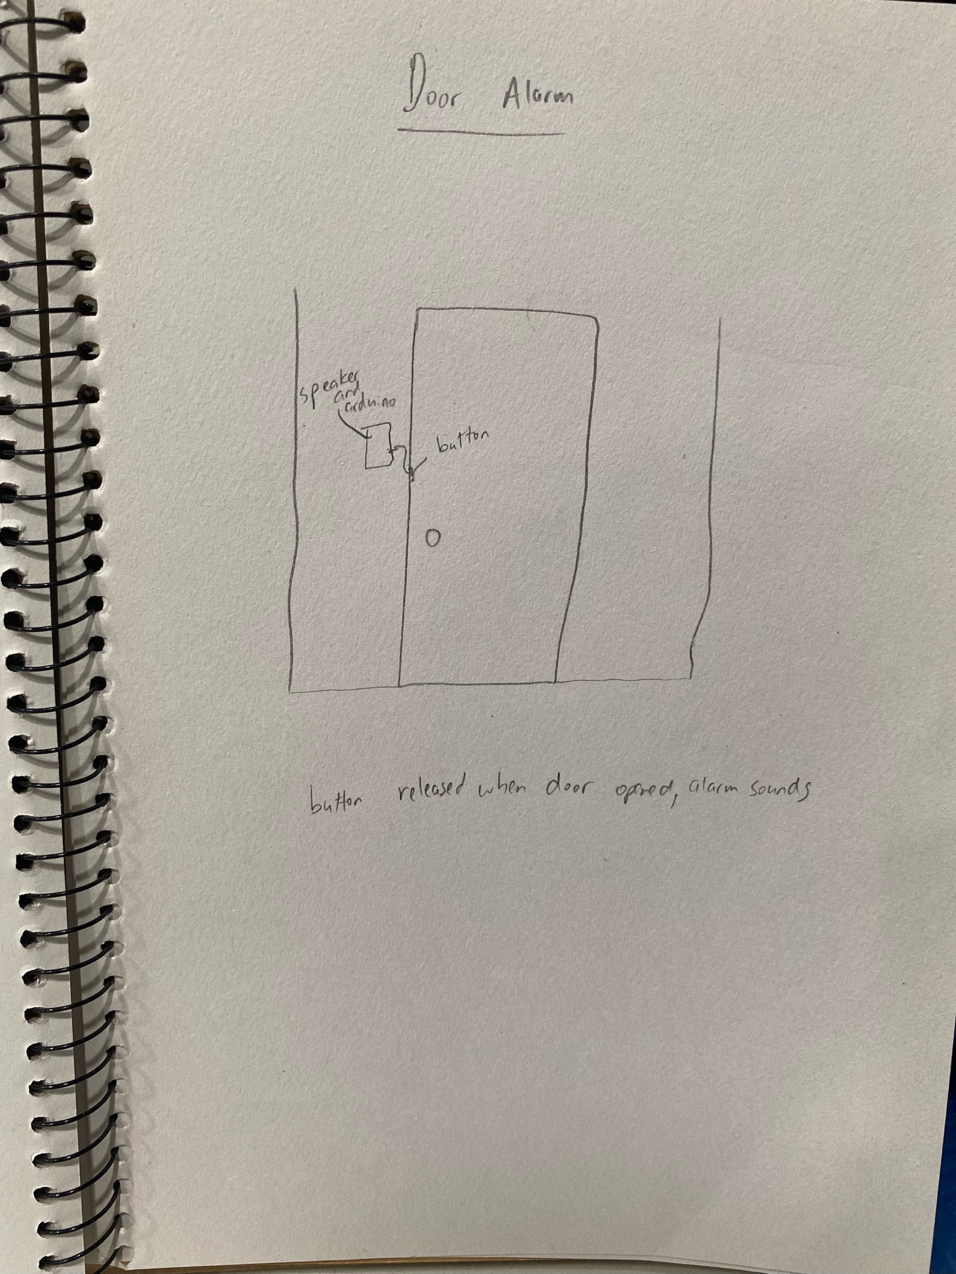 Door Alarm
speaker
and
arduino
button
button released when door opned, alarm sounds